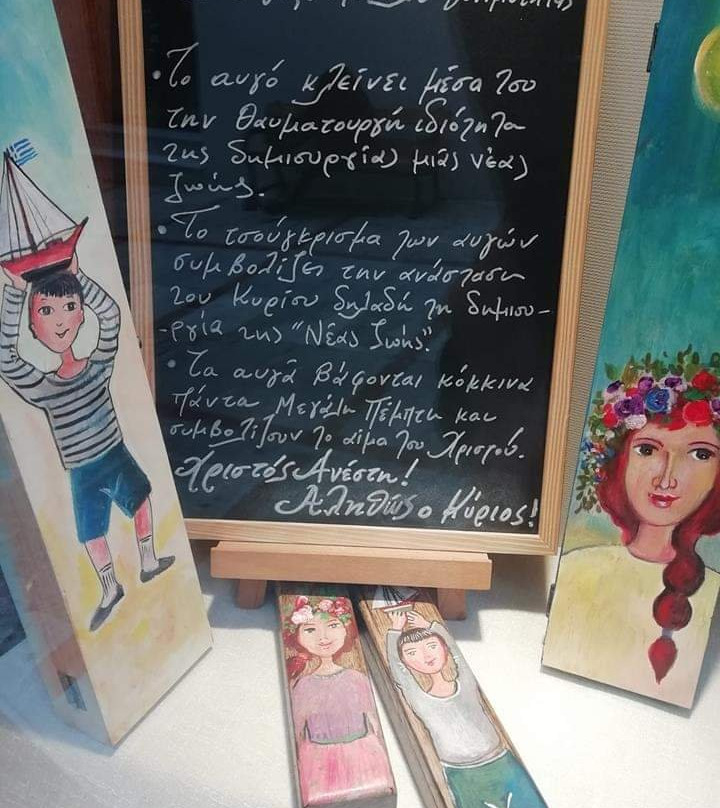 • Το αυγό κλείνει μέσα του
την θαυματουργή ιδιότητα
της δημιουργίας μιας νέας
ζωής.
• Το τσούγκρισμα των αυγών
συμβολίζει την ανάσταση
του Κυρίου δηλαδή τη δημιου-
-ργία της "Νέας ζωής".
• Τα αυγά βάφονται κόκκινα
πάντα Μεγάλη Πέμπτη και
συμβολίζουν το αίμα του Χριστού.
Χριστός Ανέστη!
Αληθώς ο Κύριος!